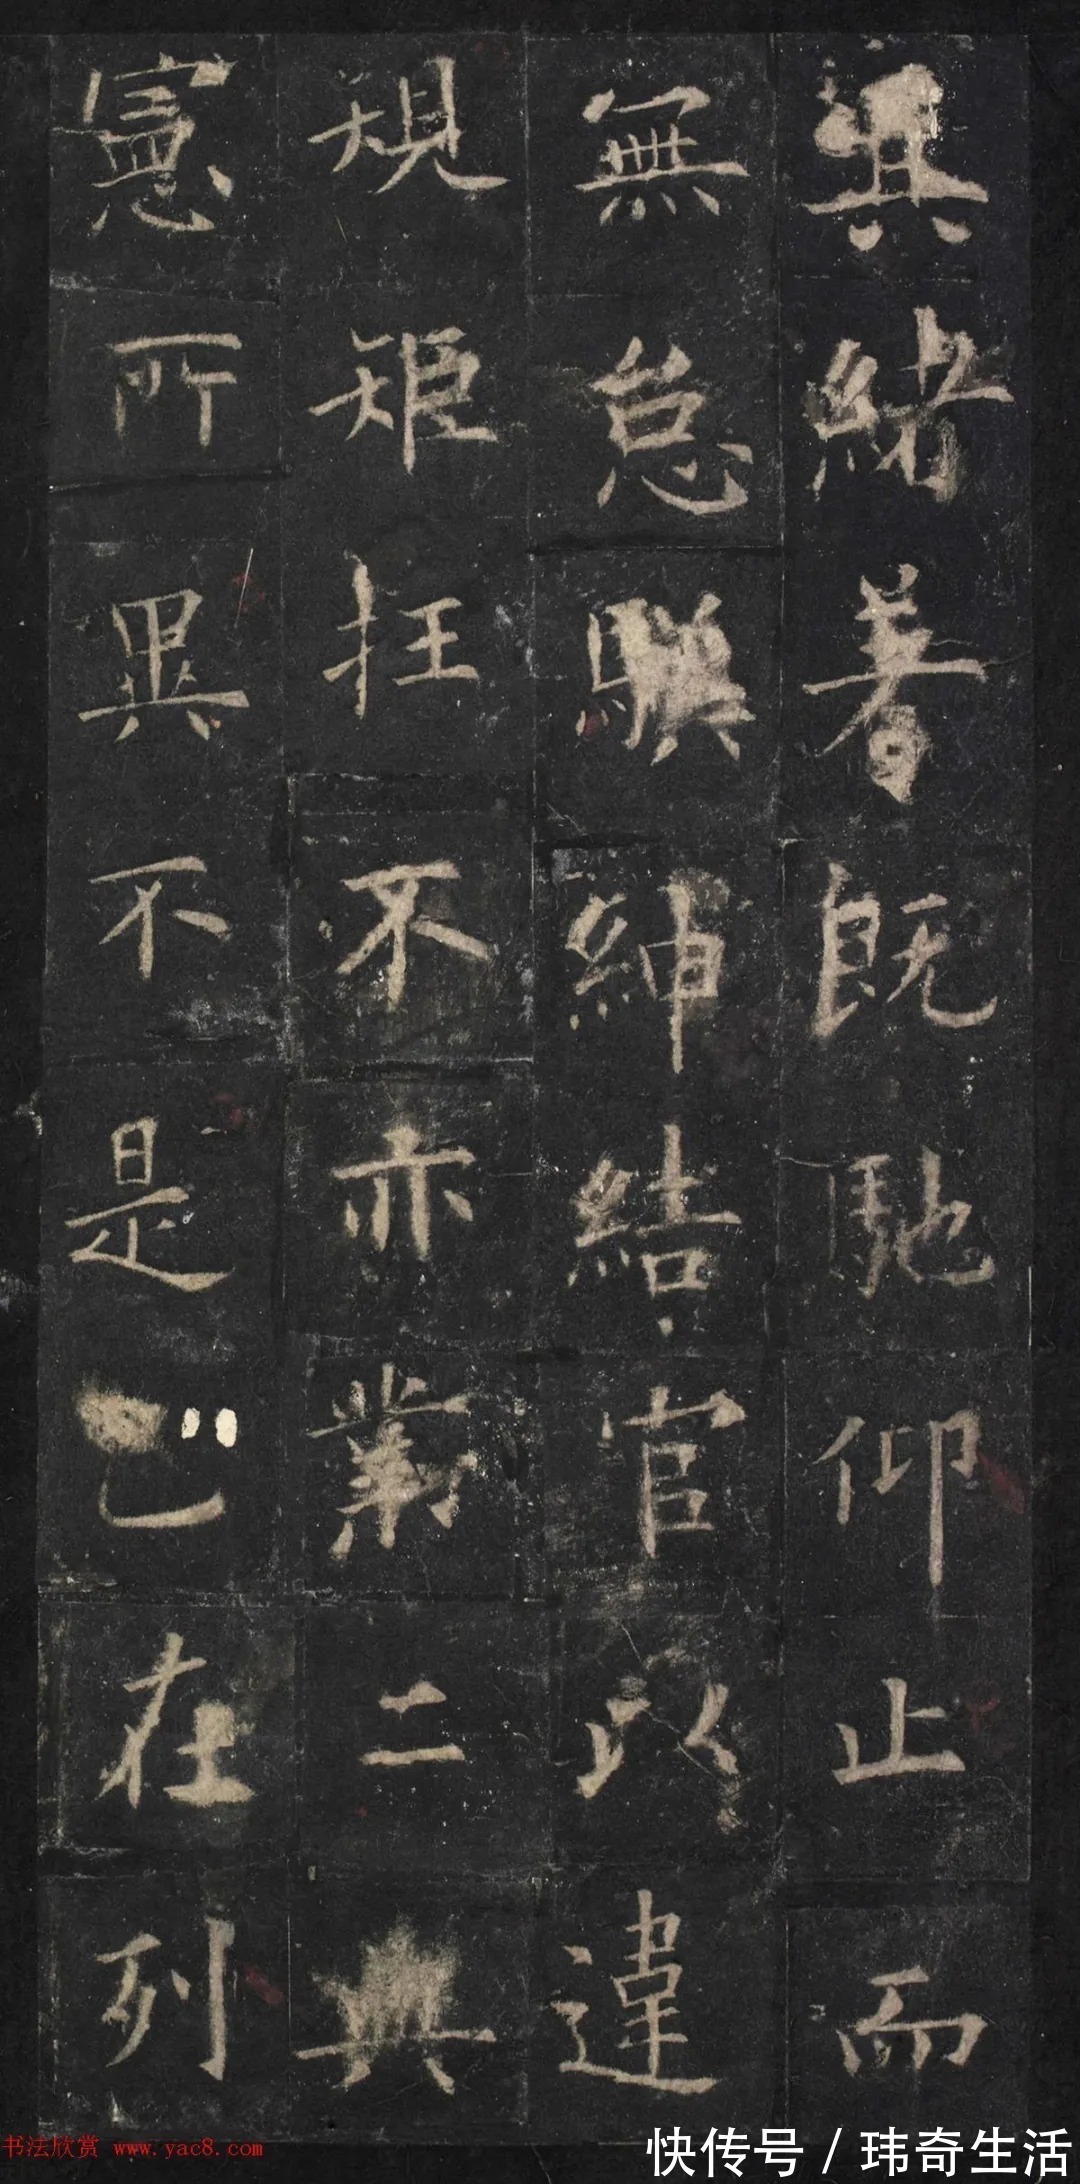 其緒著既馳仰止而
無怠聯紳結官以違
規矩抂不亦業二典
憲所異不是已在列
书法欣赏 www.yac8.com
快传号 / 玮奇生活